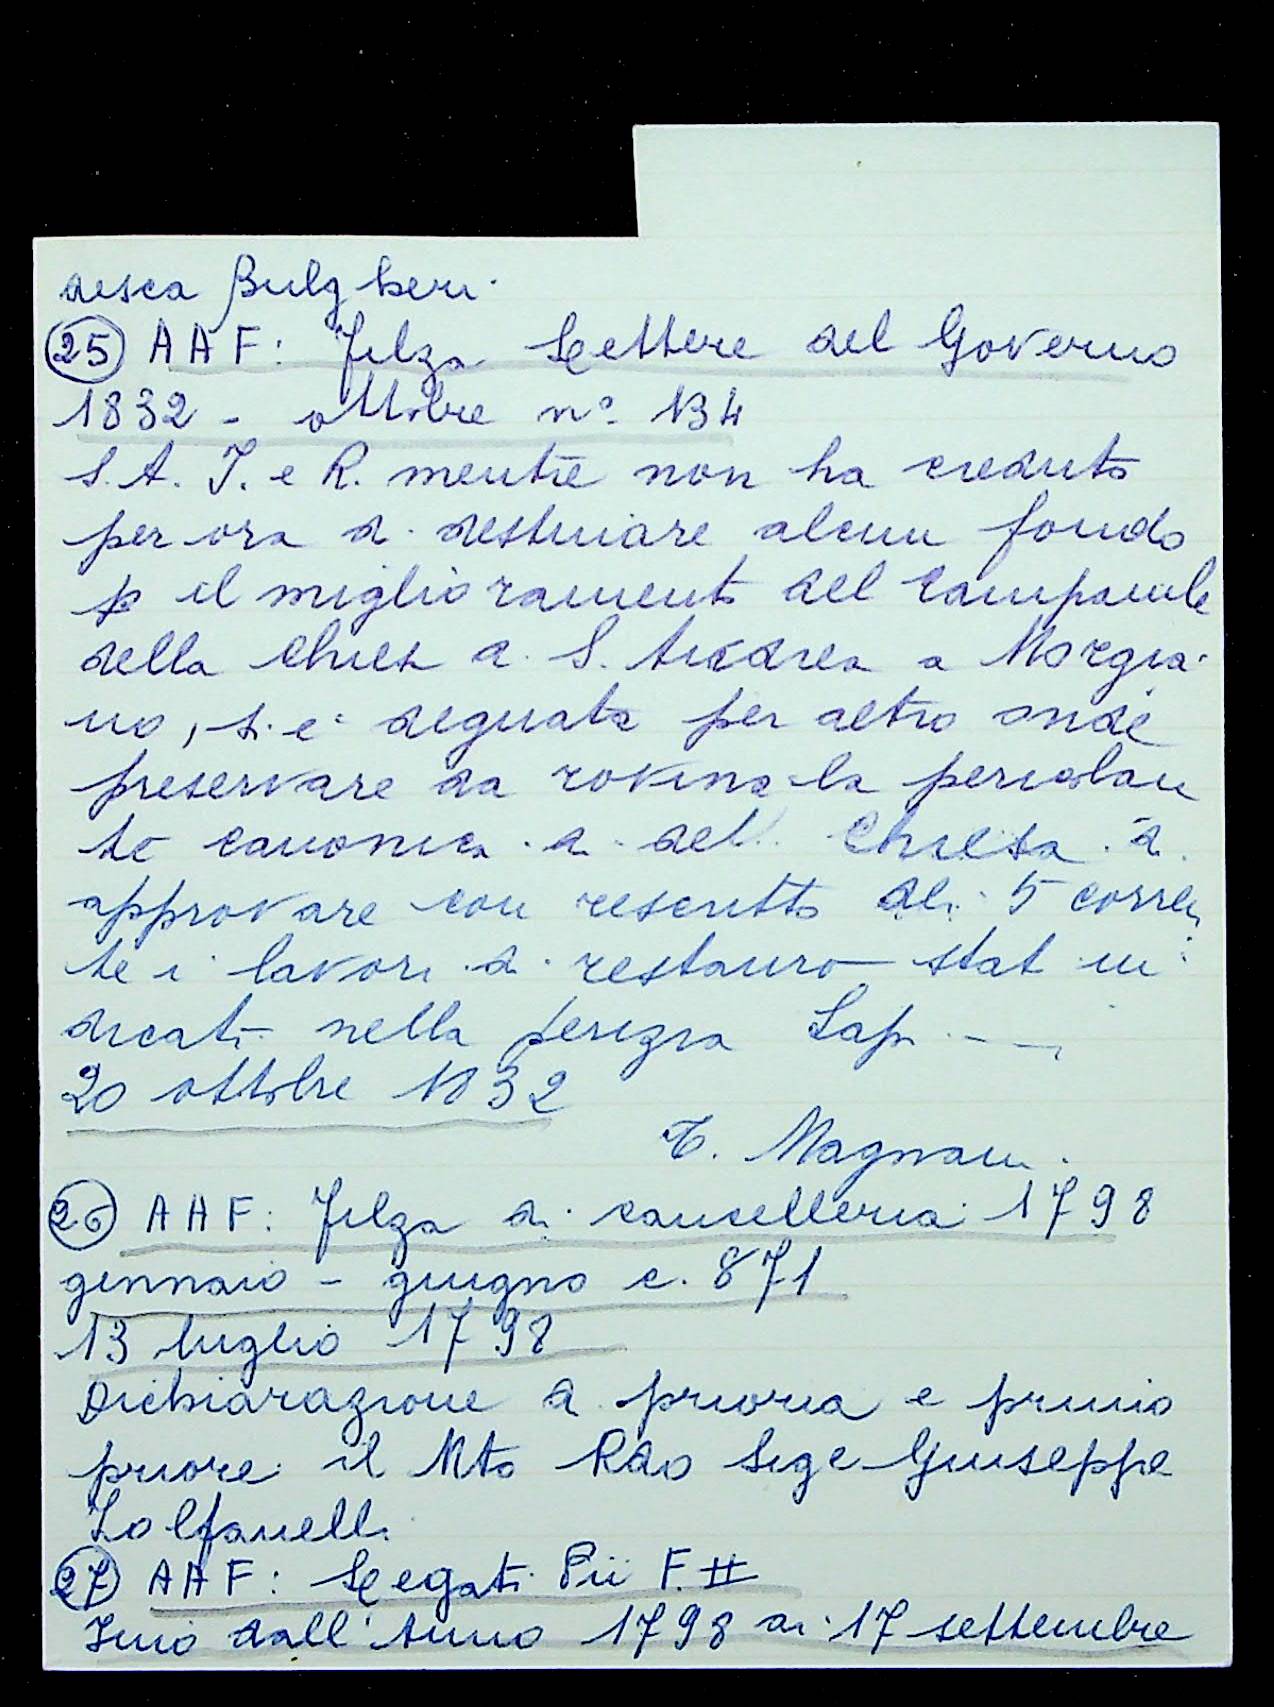 desca Bulgheri.
25 AAF: Filza Lettere del Governo
1832 - ottobre n° 134
S. A. I. e R. mentre non ha creduto
per ora di destinare alcun fondo
p il miglioramento del Campanile
della Chiesa di S. Andrea a Morgia-
no, si è degnata per altro onde
preservare da rovina la pericolan
te canonica di del. Chiesa di
approvare con rescritto dei 5 corren
te i lavori di restauro stati in
dicati nella perizia Lapi - - -
20 ottobre 1832
T. Magnani.
26 AAF: Filza di cancelleria 1798
gennaio - giugno c. 871
13 luglio 1798
Dichiarazione di prioria e primo
priore il Mto Rdo Sige Giuseppe
Zolfanelli
27 AAF: Legati Pii F. II
Inio dall'Anno 1798 ai 17 settembre